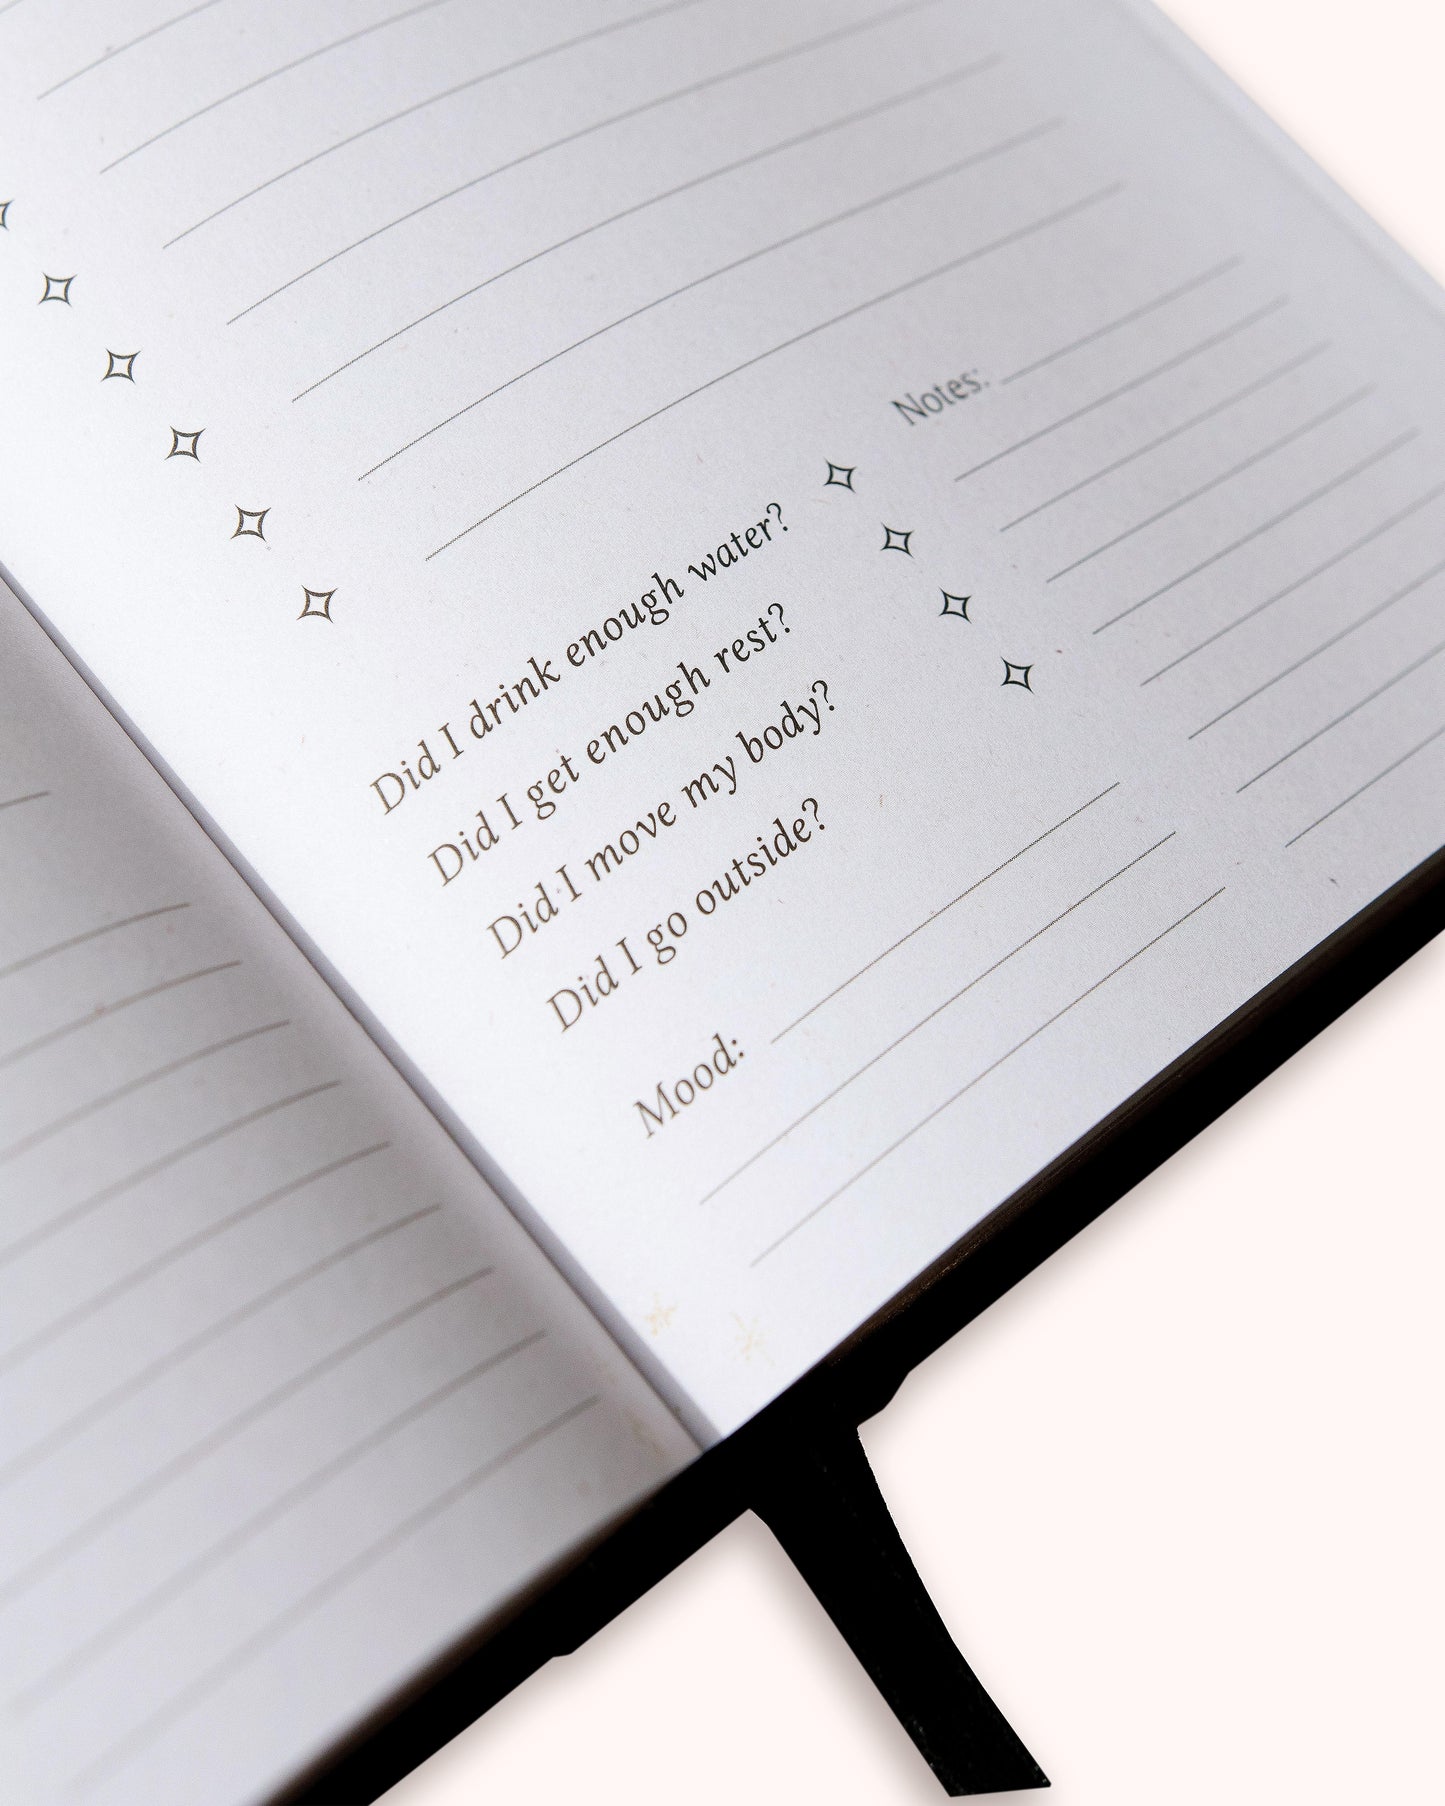 Did I drink enough water?
Did I get enough rest?
Did I move my body?
Did I go outside?
Mood:
Notes: